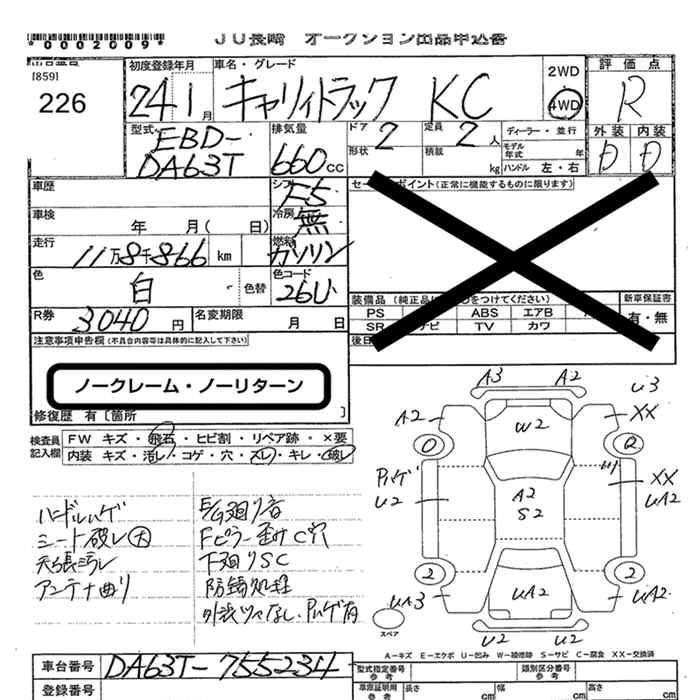 *0002009*
JU長崎 オークション出品申込書
[859]
226
初度登録年月
24 1月
車名・グレード
キャリイトラック KC
2WD
4WD
評価点
R
外装 内装
D D
型式
EBD-
DA63T
排気量
660cc
ドア 2
形状
定員 2人
積載 kg
ディーラー・並行
モデル年式 年
ハンドル 左・右
車歴
シフト F5
車検 年 月( 日)
冷房 無
走行 11万8千866 km
燃料 ガソリン
色 白 色替
色コード 26U
R券 3040円
名変期限 月 日
セールスポイント(正常に機能するものに限ります)
装備品
PS ABS エアB
SR ナビ TV カワ
新車保証書
有・無
後日
注意事項申告欄(不具合内容等は具体的に記入して下さい)
ノークレーム・ノーリターン
修復歴 有〔箇所 〕
検査員記入欄
FW キズ・飛石・ヒビ割・リペア跡・×要
内装 キズ・汚レ・コゲ・穴・スレ・キレ・破レ
ハンドルハゲ
シート破レ大
天張汚レ
アンテナ曲り
E/G廻り音
Fピラー歪みC穴
下廻りSC
防錆処理
A3 A2 U3
A2 W2 XX
U2 A2 S2 XX UA2
2 2
UA3 UA2 UA2
U2 U2
スペア
A-キズ E-エクボ U-凹み W-補修跡 S-サビ C-腐食 XX-交換済
車台番号 DA63T-755234
登録番号
型式指定番号 参考
類別区分番号 参考
車庫証明用 参考
長さ cm 幅 cm 高さ cm